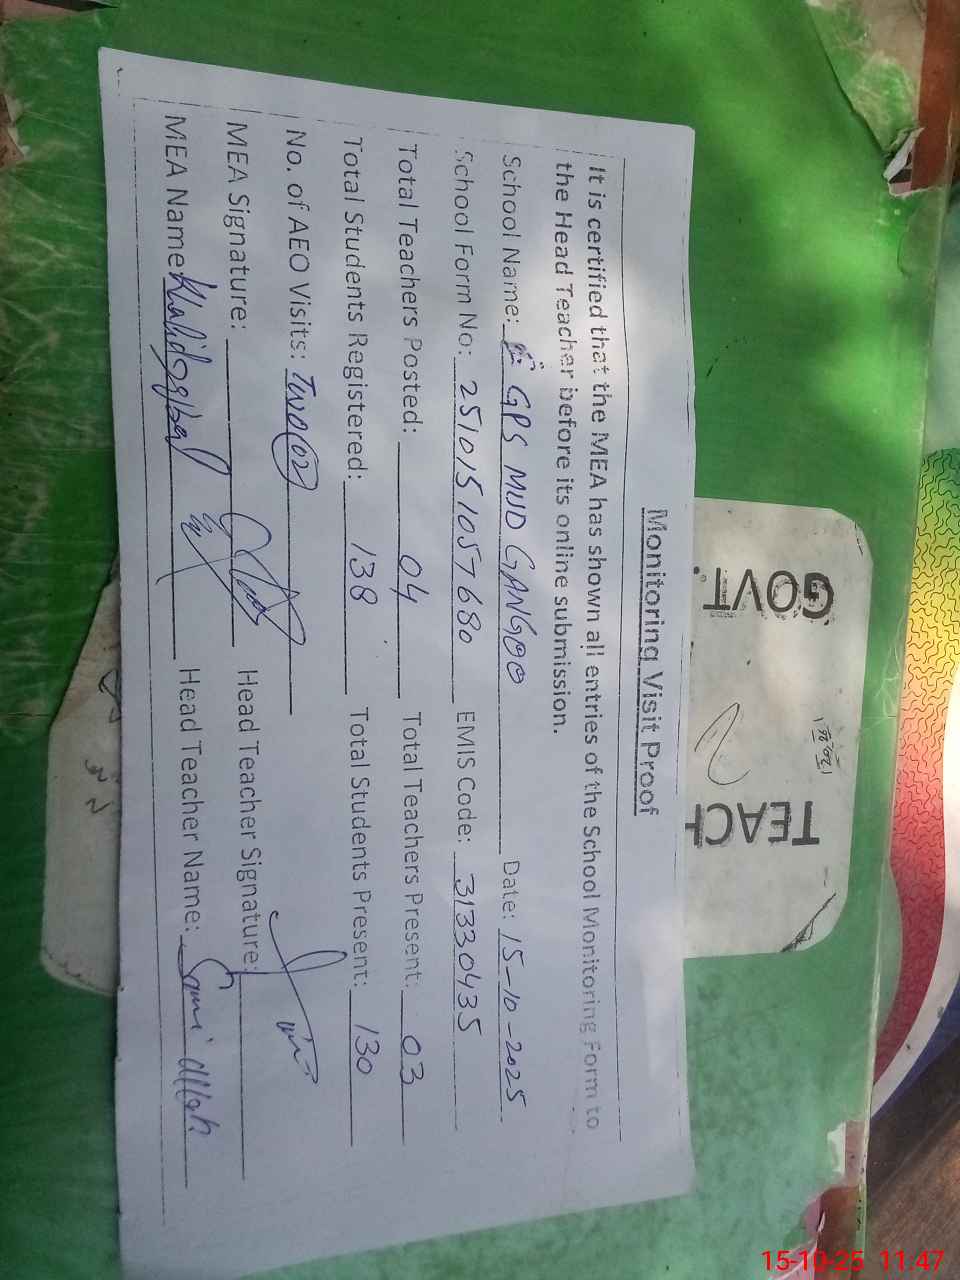 Monitoring Visit Proof
It is certified that the MEA has shown all entries of the School Monitoring Form to
the Head Teacher before its online submission.
School Name: GPS MUD GANGOO Date: 15-10-2025
School Form No: 2510151057680 EMIS Code: 31330435
Total Teachers Posted: 04 Total Teachers Present: 03
Total Students Registered: 138 Total Students Present: 130
No. of AEO Visits: Two (02)
MEA Signature: Head Teacher Signature:
MEA Name Khalid Iqbal Head Teacher Name: Sami Ullah
GOVT.
TEACH
15-10-25 11:47